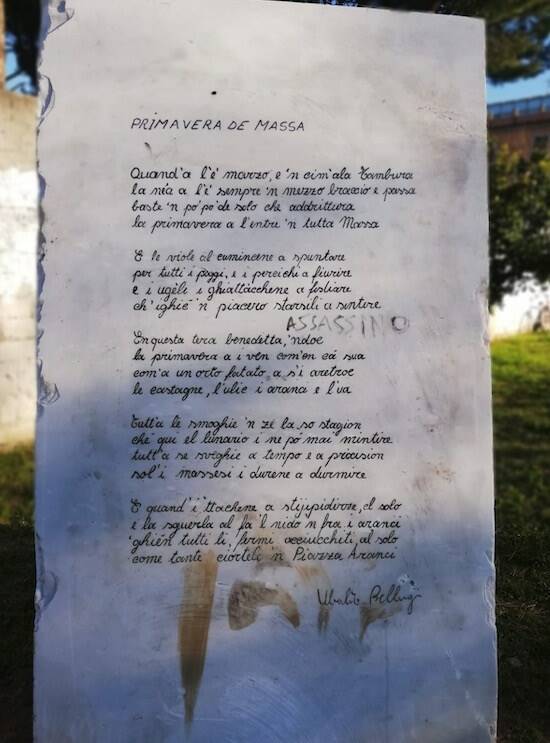 PRIMAVERA DE MASSA
Quand'a l'è marzo, e 'n cim'ala Tambura
la nèa a l'è sempre 'n mezzo braccio e passa
baste 'n po' po' de solo che addrittura
la primavera a l'entre 'n tutta Massa
E le viole al cumincene a spuntare
per tutti i poggi, e i pereichi a fiurire
e i ugèli i ghiattàcchene a festiare
ch' ighiè 'n piacero starsili a sintire
ASSASSINO
En questa tera benedetta, 'ndoe
la primavera a i ven com'en cà sua
com'a un orto fatato, a s'i aretroe
le castagne, l'ulie i aranci e l'ua
Tutt'a le smoghie 'n ze la so stagion
chè qui el lunario i ne po' mai mintire
tutt'a se sveghie a tempo e a precision
sol'i massesi i durene a durmire
E quand'i 'ttachene a stijipidirse, el solo
e la squerla al fa 'l nido 'n fra i aranci
'ghièn tutti li, fermi acciucchiti, al solo
come tante ciorteli 'n Piazza Aranci
Ubaldo Bellugi